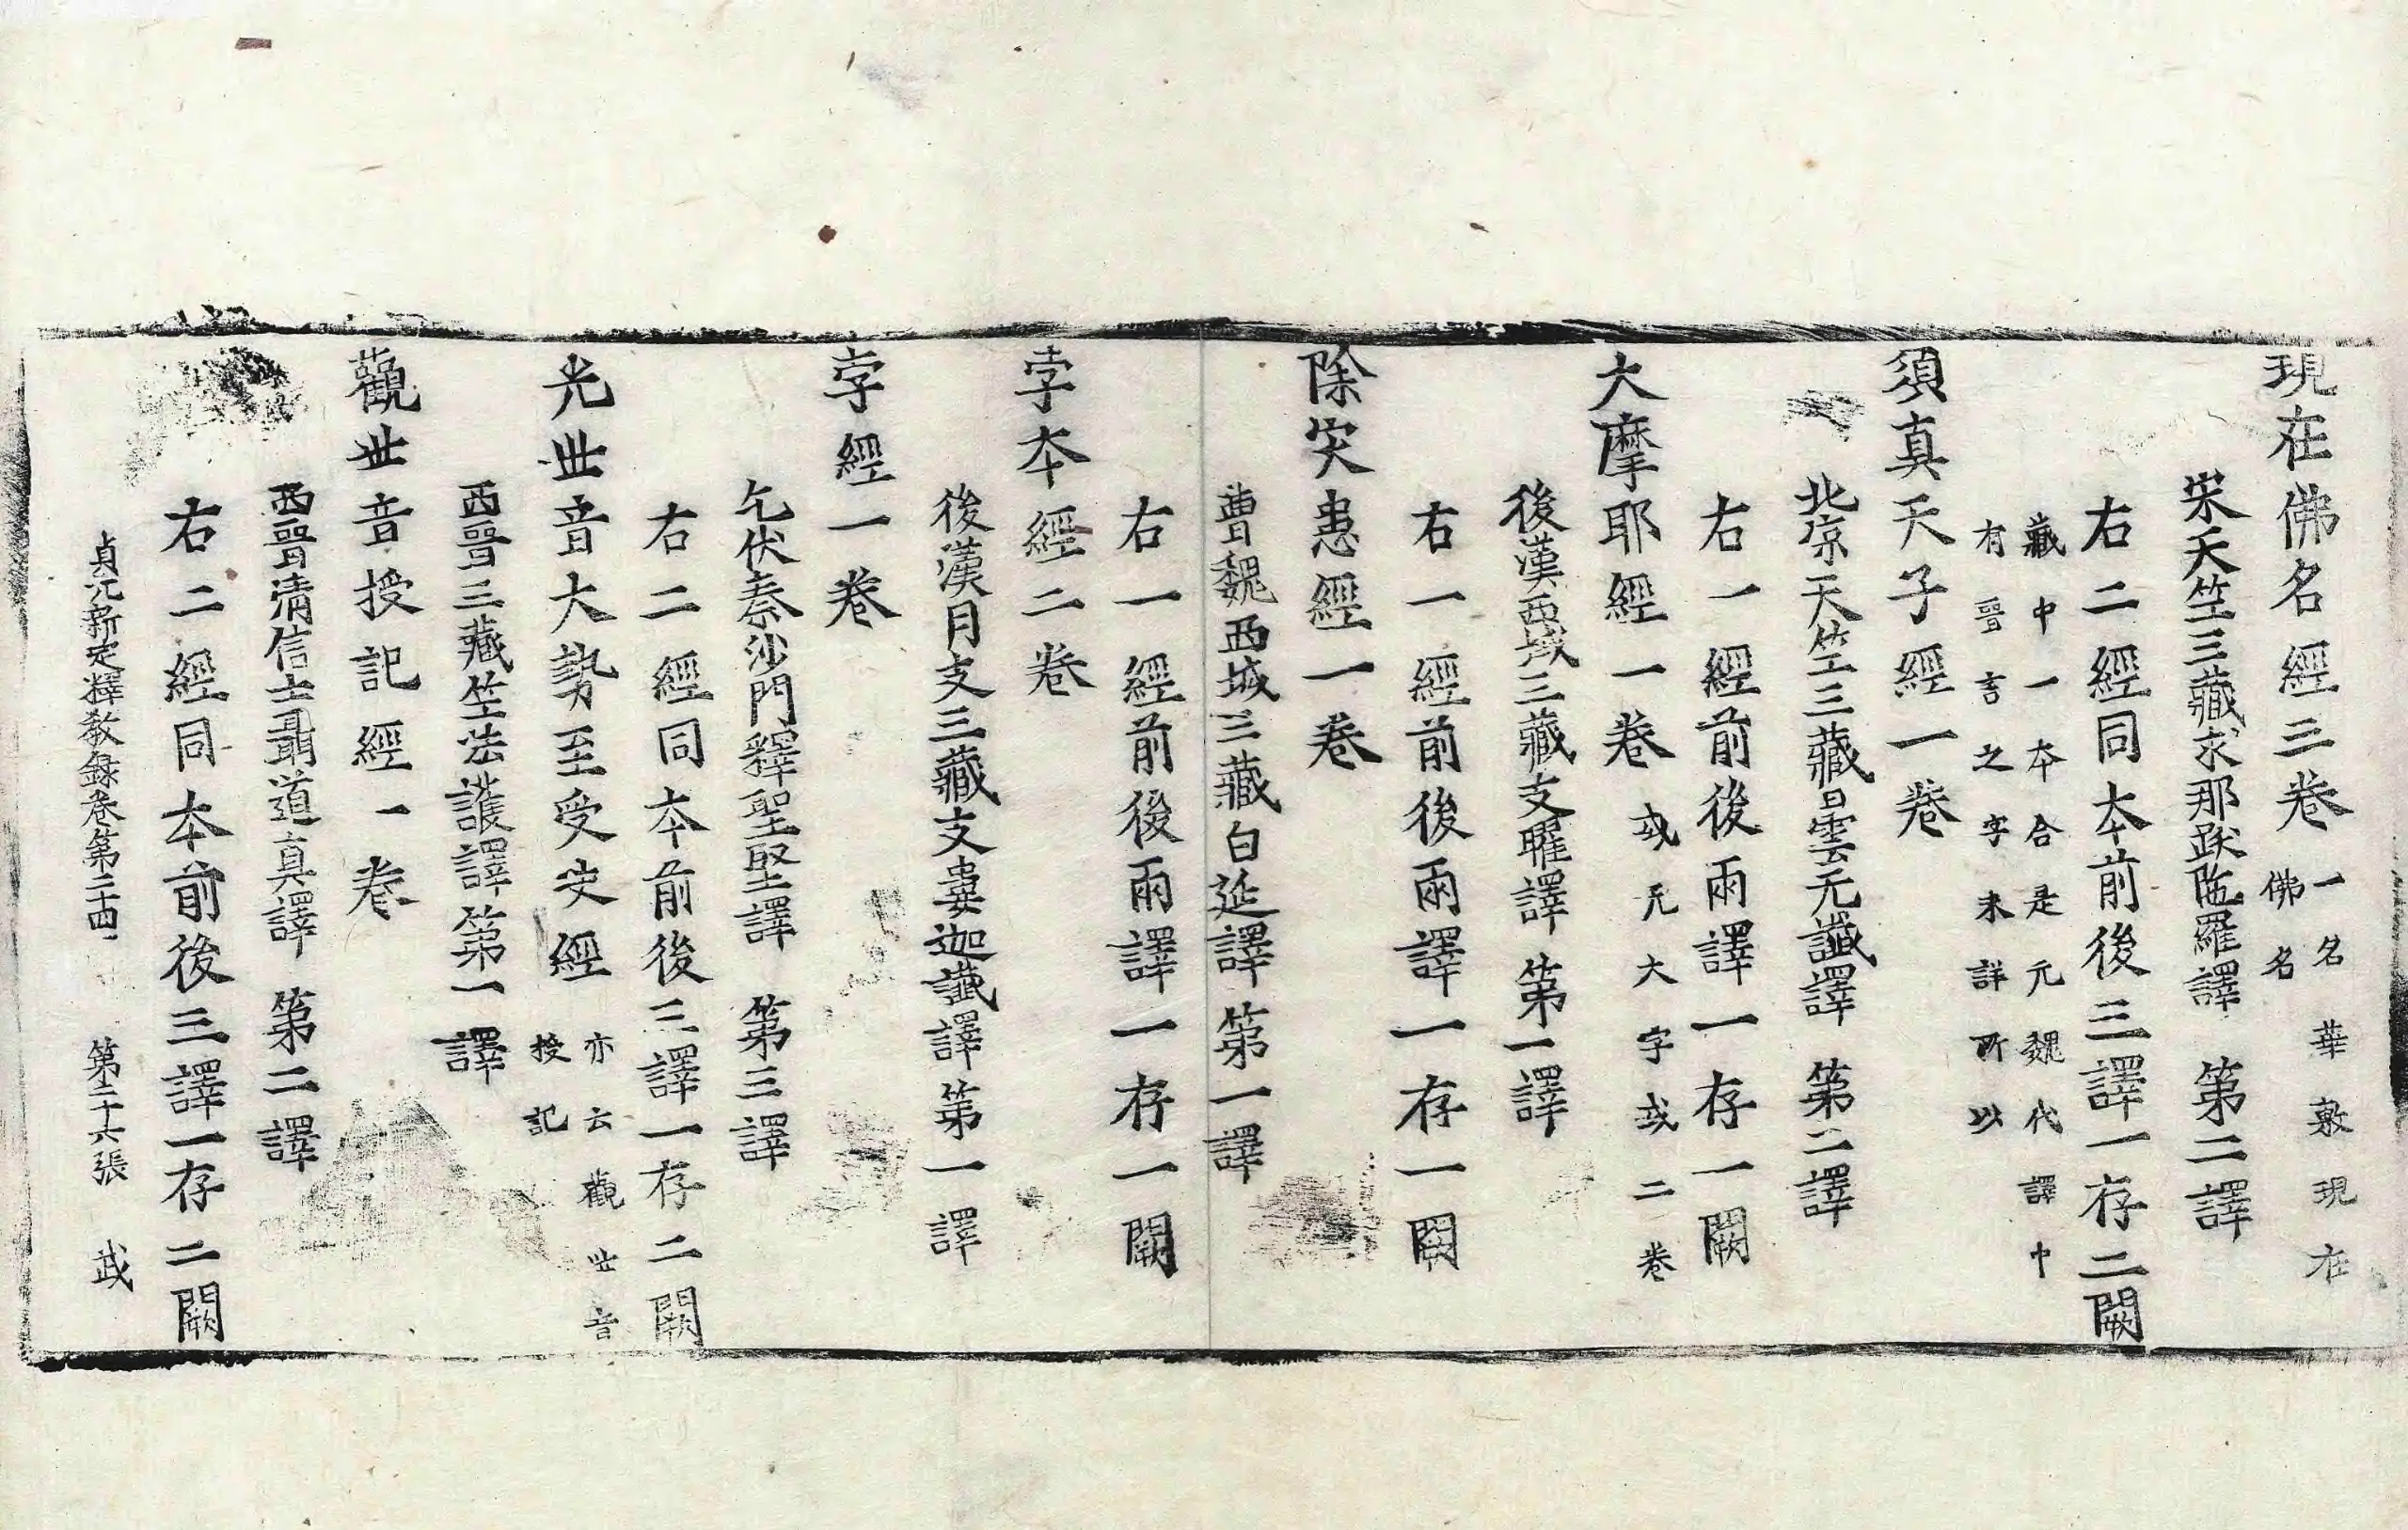 現在佛名經三卷一名華敷現在
佛名
宋天竺三藏求那跋陁羅譯 第二譯
右二經同本前後三譯一存二闕
藏中一本合是元魏代譯中
有晉言之字未詳所以
須真天子經一卷
北涼天竺三藏曇无讖譯 第二譯
右一經前後兩譯一存一闕
大摩耶經一卷或无大字或二卷
後漢西域三藏支曜譯 第一譯
右一經前後兩譯一存一闕
除灾患經一卷
曹魏西域三藏白延譯第一譯
右一經前後兩譯一存一闕
孛本經二卷
後漢月支三藏支婁迦讖譯第一譯
孛經一卷
乞伏秦沙門釋聖堅譯 第三譯
右二經同本前後三譯一存二闕
光世音大勢至受决經亦云觀世音
授記
西晉三藏竺法護譯第一譯
觀世音授記經一卷
西晉清信士聶道真譯 第二譯
右二經同本前後三譯一存二闕
貞元新定釋教錄卷第二十四 第二十六張 武